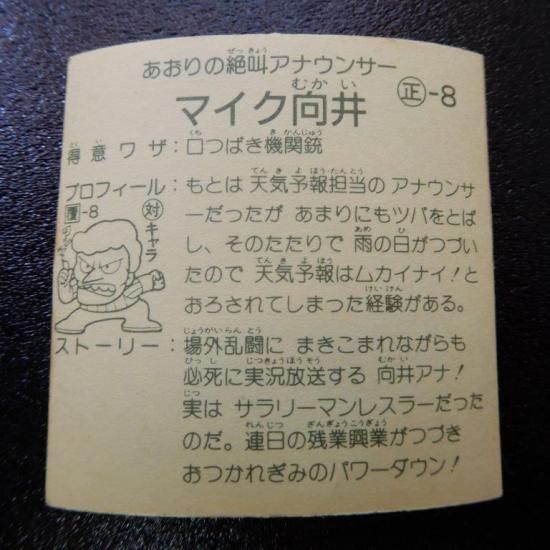 あおりの絶叫アナウンサー
マイク向井 正-8
得意ワザ：口つばき機関銃
プロフィール：もとは 天気予報担当の アナウンサ
ーだったが あまりにもツバをとば
し、そのたたりで 雨の日がつづい
たので 天気予報はムカイナイ！と
おろされてしまった経験がある。
覆-8 対キャラ
ストーリー：場外乱闘に まきこまれながらも
必死に実況放送する 向井アナ！
実は サラリーマンレスラーだった
のだ。連日の残業興業がつづき
おつかれぎみのパワーダウン！